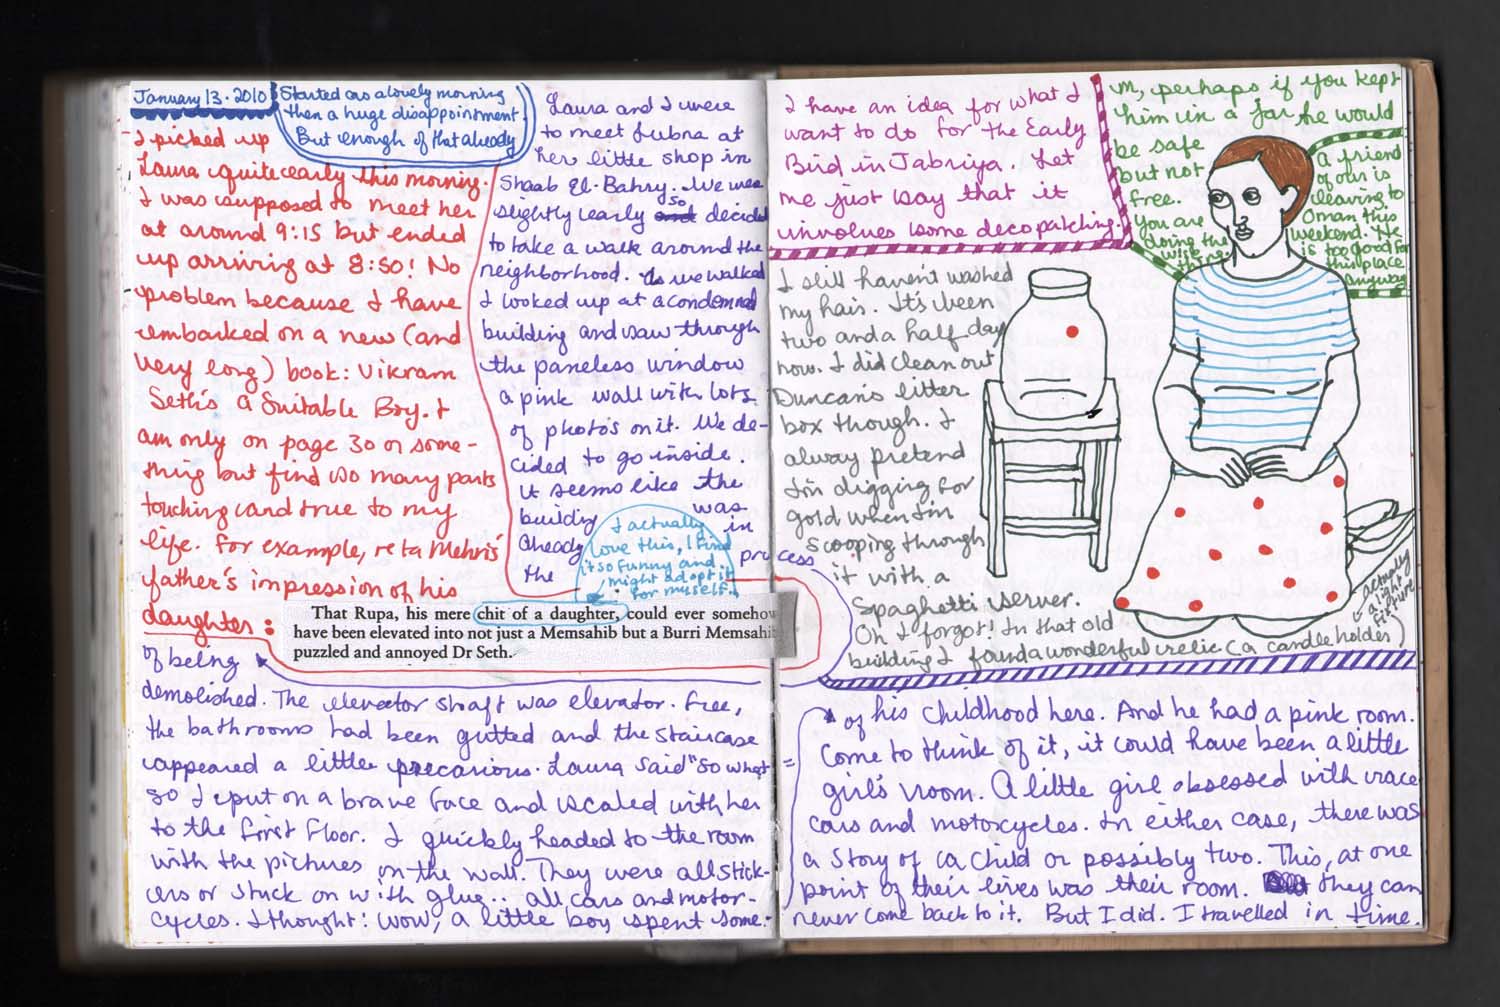 January 13 · 2010
Started as a lovely morning
then a huge disappointment.
But enough of that already
I picked up
Laura quite early this morning.
I was supposed to meet her
at around 9:15 but ended
up arriving at 8:50! No
problem because I have
embarked on a new (and
very long) book: Vikram
Seth's A Suitable Boy. I
am only on page 30 or some-
thing but find so many parts
touching and true to my
life. For example, re ta Mehris'
father's impression of his
daughter:
That Rupa, his mere chit of a daughter, could ever somehow
have been elevated into not just a Memsahib but a Burri Memsahib
puzzled and annoyed Dr Seth.
I actually
love this, I find
it so funny and
might adopt it
for myself.
Laura and I were
to meet Lubna at
her little shop in
Shaab El-Bahry. We were
slightly early so decided
to take a walk around the
neighborhood. As we walked
I looked up at a condemned
building and saw through
the paneless window
a pink wall with lots
of photo's on it. We de-
cided to go inside.
It seems like the
building was
already in
the process
of being
demolished. The elevator shaft was elevator-free,
the bathrooms had been gutted and the staircase
appeared a little precarious. Laura said "so what"
so I put on a brave face and scaled with her
to the first floor. I quickly headed to the room
with the pictures on the wall. They were all stick-
ers or stuck on with glue.. all cars and motor-
cycles. I thought: wow, a little boy spent some
of his childhood here. And he had a pink room.
Come to think of it, it could have been a little
girl's room. A little girl obsessed with race
cars and motorcycles. In either case, there was
a story of a child or possibly two. This, at one
point of their lives was their room. They can
never come back to it. But I did. I travelled in time.
I have an idea for what I
want to do for the Early
Bird in Jabriya. Let
me just say that it
involves some decopatching.
A friend
of ours is
leaving to
Oman this
weekend. He
is too good for
this place
anyway
perhaps if you kept
him in a jar he would
be safe
but not
free.
You are
doing the
wise
thing
I still haven't washed
my hair. It's been
two and a half days
now. I did clean out
Duncan's litter
box though. I
always pretend
I'm digging for
gold when I'm
scooping through
it with a
spaghetti server.
Oh I forgot! In that old
building I found a wonderful relic (a candle holder)
actually
a light
fixture